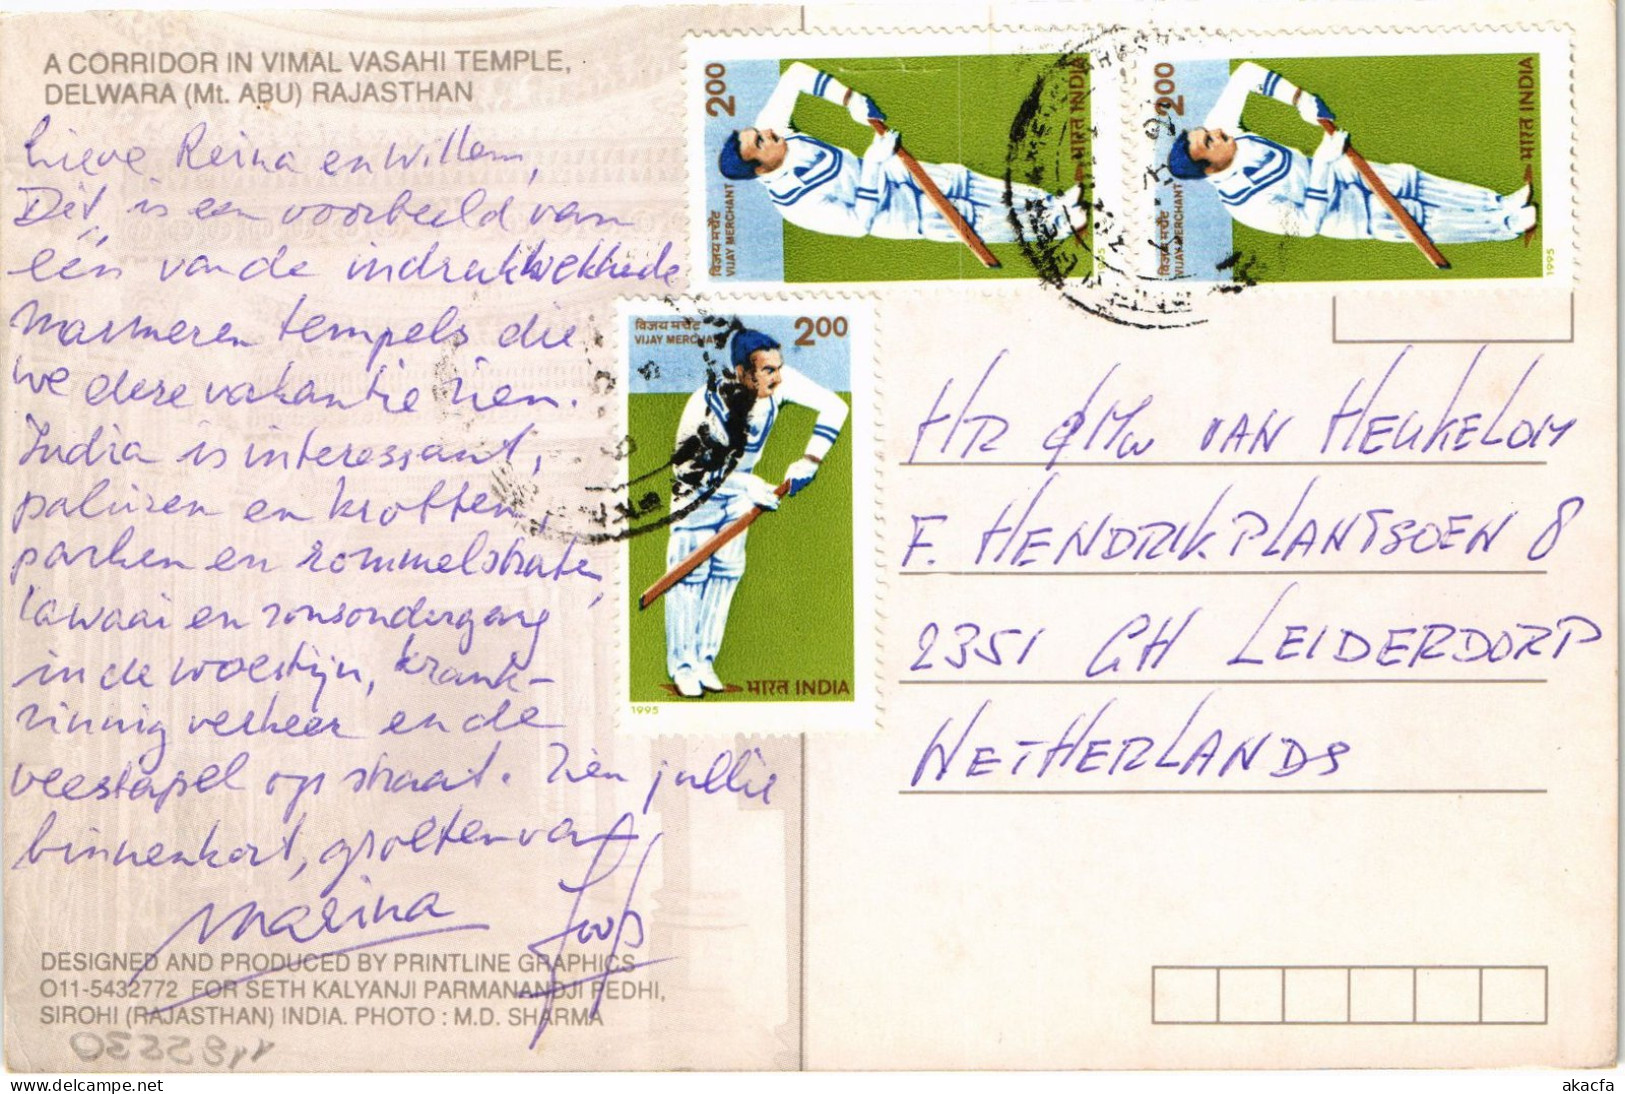 A CORRIDOR IN VIMAL VASAHI TEMPLE,
DELWARA (Mt. ABU) RAJASTHAN
Lieve Reina en Willem,
Dit is een voorbeeld van
één van de indrukwekkende
marmeren tempels die
we deze vakantie zien.
India is interessant,
paleizen en krotten,
parken en rommelstraten,
lawaai en zonsondergang
in de woestijn, krank-
zinnig verkeer en de
veestapel op straat. Zien jullie
binnenkort, groeten van
Marina Joop
DESIGNED AND PRODUCED BY PRINTLINE GRAPHICS
011-5432772 FOR SETH KALYANJI PARMANANDJI PEDHI,
SIROHI (RAJASTHAN) INDIA. PHOTO : M.D. SHARMA
2.00
विजय मर्चेंट
VIJAY MERCHANT
भारत INDIA
1995
2.00
विजय मर्चेंट
VIJAY MERCHANT
भारत INDIA
1995
विजय मर्चेंट
VIJAY MERCHANT
2.00
भारत INDIA
1995
HR & MW VAN HEUKELOM
F. HENDRIKPLANTSOEN 8
2351 CH LEIDERDORP
NETHERLANDS
akacfa